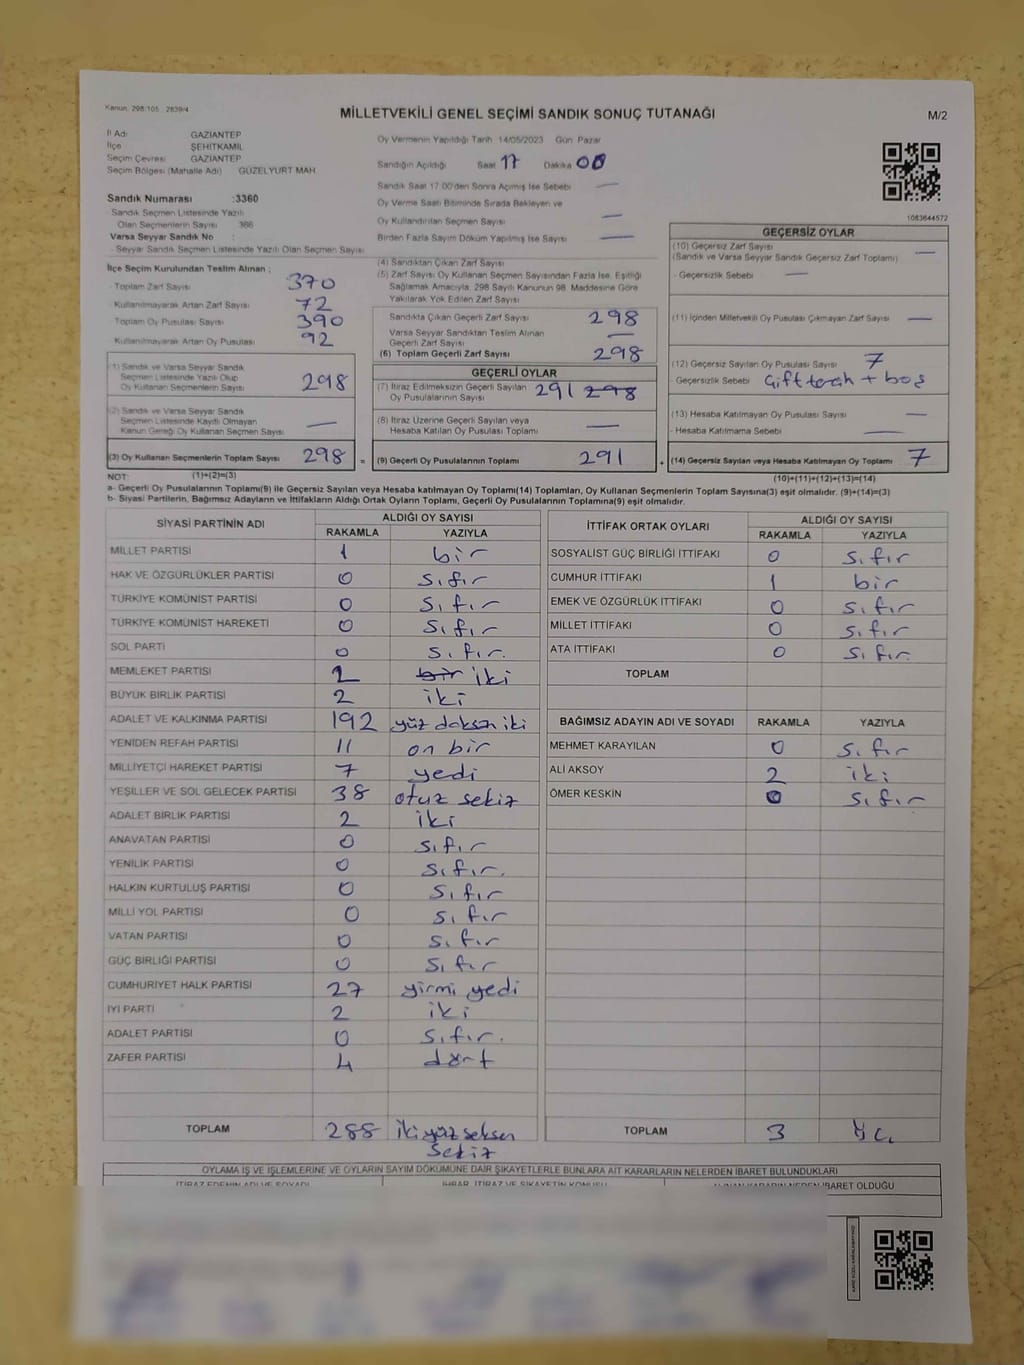 Kanun. 298/105 . 2839/4
MİLLETVEKİLİ GENEL SEÇİMİ SANDIK SONUÇ TUTANAĞI
M/2
İl Adı GAZİANTEP
İlçe ŞEHİTKAMİL
Seçim Çevresi GAZİANTEP
Seçim Bölgesi (Mahalle Adı) GÜZELYURT MAH
Oy Vermenin Yapıldığı Tarih 14/05/2023 Gün Pazar
Sandığın Açıldığı Saat 17 Dakika 00
Sandık Saat 17.00'den Sonra Açılmış İse Sebebi —
Oy Verme Saati Bitiminde Sırada Bekleyen ve
Oy Kullandırılan Seçmen Sayısı —
Birden Fazla Sayım Döküm Yapılmış İse Sayısı —
1083644572
Sandık Numarası :3360
- Sandık Seçmen Listesinde Yazılı
Olan Seçmenlerin Sayısı 366
Varsa Seyyar Sandık No :
- Seyyar Sandık Listesinde Yazılı Olan Seçmen Sayısı
İlçe Seçim Kurulundan Teslim Alınan ;
- Toplam Zarf Sayısı 370
- Kullanılmayarak Artan Zarf Sayısı 72
Toplam Oy Pusulası Sayısı 390
- Kullanılmayarak Artan Oy Pusulası 92
(1) Sandık ve Varsa Seyyar Sandık
Seçmen Listesinde Yazılı Olup
Oy Kullanan Seçmenlerin Sayısı 298
(2) Sandık ve Varsa Seyyar Sandık
Seçmen Listesinde Kaydı Olmayan
Kanun Gereği Oy Kullanan Seçmen Sayısı —
(3) Oy Kullanan Seçmenlerin Toplam Sayısı 298 =
(1)+(2)=(3)
(4) Sandıktan Çıkan Zarf Sayısı
(5) Zarf Sayısı Oy Kullanan Seçmen Sayısından Fazla İse, Eşitliği
Sağlamak Amacıyla, 298 Sayılı Kanunun 98. Maddesine Göre
Yakılarak Yok Edilen Zarf Sayısı
Sandıkta Çıkan Geçerli Zarf Sayısı 298
Varsa Seyyar Sandıktan Teslim Alınan
Geçerli Zarf Sayısı —
(6) Toplam Geçerli Zarf Sayısı 298
GEÇERLİ OYLAR
(7) İtiraz Edilmeksizin Geçerli Sayılan
Oy Pusulalarının Sayısı 291 298
(8) İtiraz Üzerine Geçerli Sayılan veya
Hesaba Katılan Oy Pusulası Toplamı —
(9) Geçerli Oy Pusulalarının Toplamı 291 +
GEÇERSİZ OYLAR
(10) Geçersiz Zarf Sayısı
(Sandık ve Varsa Seyyar Sandık Geçersiz Zarf Toplamı) —
- Geçersizlik Sebebi —
(11) İçinden Milletvekili Oy Pusulası Çıkmayan Zarf Sayısı —
(12) Geçersiz Sayılan Oy Pusulası Sayısı 7
Geçersizlik Sebebi Çift tercih + boş
(13) Hesaba Katılmayan Oy Pusulası Sayısı —
- Hesaba Katılmama Sebebi —
(14) Geçersiz Sayılan veya Hesaba Katılmayan Oy Toplamı 7
(10)+(11)+(12)+(13)=(14)
NOT:
a- Geçerli Oy Pusulası Toplamı(9) ile Geçersiz Sayılan veya Hesaba katılmayan Oy Toplamı(14) Toplamları, Oy Kullanan Seçmenlerin Toplam Sayısına(3) eşit olmalıdır. (9)+(14)=(3)
b- Siyasi Partilerin, Bağımsız Adayların ve İttifakların Aldığı Ortak Oyların Toplamı, Geçerli Oy Pusulalarının Toplamına(9) eşit olmalıdır.
SİYASİ PARTİNİN ADI ALDIĞI OY SAYISI
RAKAMLA YAZIYLA
MİLLET PARTİSİ 1 bir
HAK VE ÖZGÜRLÜKLER PARTİSİ 0 sıfır
TÜRKİYE KOMÜNİST PARTİSİ 0 sıfır
TÜRKİYE KOMÜNİST HAREKETİ 0 sıfır
SOL PARTİ 0 sıfır.
MEMLEKET PARTİSİ 2 bir iki
BÜYÜK BİRLİK PARTİSİ 2 iki
ADALET VE KALKINMA PARTİSİ 192 yüz doksan iki
YENİDEN REFAH PARTİSİ 11 on bir
MİLLİYETÇİ HAREKET PARTİSİ 7 yedi
YEŞİLLER VE SOL GELECEK PARTİSİ 38 otuz sekiz
ADALET BİRLİK PARTİSİ 2 iki
ANAVATAN PARTİSİ 0 sıfır
YENİLİK PARTİSİ 0 sıfır.
HALKIN KURTULUŞ PARTİSİ 0 sıfır
MİLLİ YOL PARTİSİ 0 sıfır
VATAN PARTİSİ 0 sıfır
GÜÇ BİRLİĞİ PARTİSİ 0 sıfır
CUMHURİYET HALK PARTİSİ 27 yirmi yedi
İYİ PARTİ 2 iki
ADALET PARTİSİ 0 sıfır.
ZAFER PARTİSİ 4 dört
TOPLAM 288 iki yüz seksen
sekiz
İTTİFAK ORTAK OYLARI ALDIĞI OY SAYISI
RAKAMLA YAZIYLA
SOSYALİST GÜÇ BİRLİĞİ İTTİFAKI 0 sıfır
CUMHUR İTTİFAKI 1 bir
EMEK VE ÖZGÜRLÜK İTTİFAKI 0 sıfır
MİLLET İTTİFAKI 0 sıfır
ATA İTTİFAKI 0 sıfır.
TOPLAM
BAĞIMSIZ ADAYIN ADI VE SOYADI RAKAMLA YAZIYLA
MEHMET KARAYILAN 0 sıfır
ALİ AKSOY 2 iki
ÖMER KESKİN 0 sıfır
TOPLAM 3 üç
OYLAMA İŞ VE İŞLEMLERİNE VE OYLARIN SAYIM DÖKÜMÜNE DAİR ŞİKAYETLERLE BUNLARA AİT KARARLARIN NELERDEN İBARET BULUNDUKLARI
İTİRAZ EDENİN ADI VE SOYADI İHBAR, İTİRAZ VE ŞİKAYETİN KONUSU ALINAN KARARIN NEDEN İBARET OLDUĞU